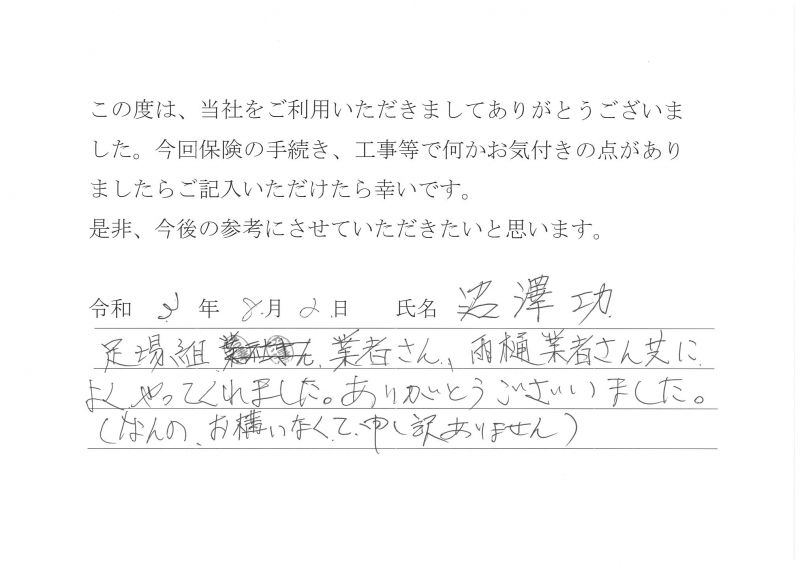 この度は、当社をご利用いただきましてありがとうございま
した。今回保険の手続き、工事等で何かお気付きの点があり
ましたらご記入いただけたら幸いです。
是非、今後の参考にさせていただきたいと思います。
令和 3 年 8 月 2 日 氏名 沼澤 功
足場組 業者さん、雨樋業者さん共に
よくやってくれました。ありがとうございました。
(なんの、お構いなくて、申し訳ありません)